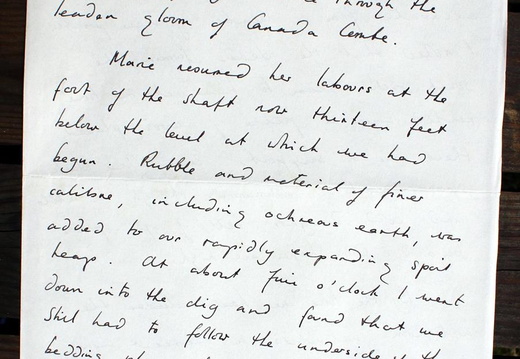 through the
leaden gloom of Canada Combe.
Marie resumed her labours at the
foot of the shaft now thirteen feet
below the level at which we had
begun. Rubble and material of finer
calibre, including ochreous earth, was
added to our rapidly expanding spoil
heap. At about five o'clock I went
down into the dig and found that we
still had to follow the underside of the
bedding